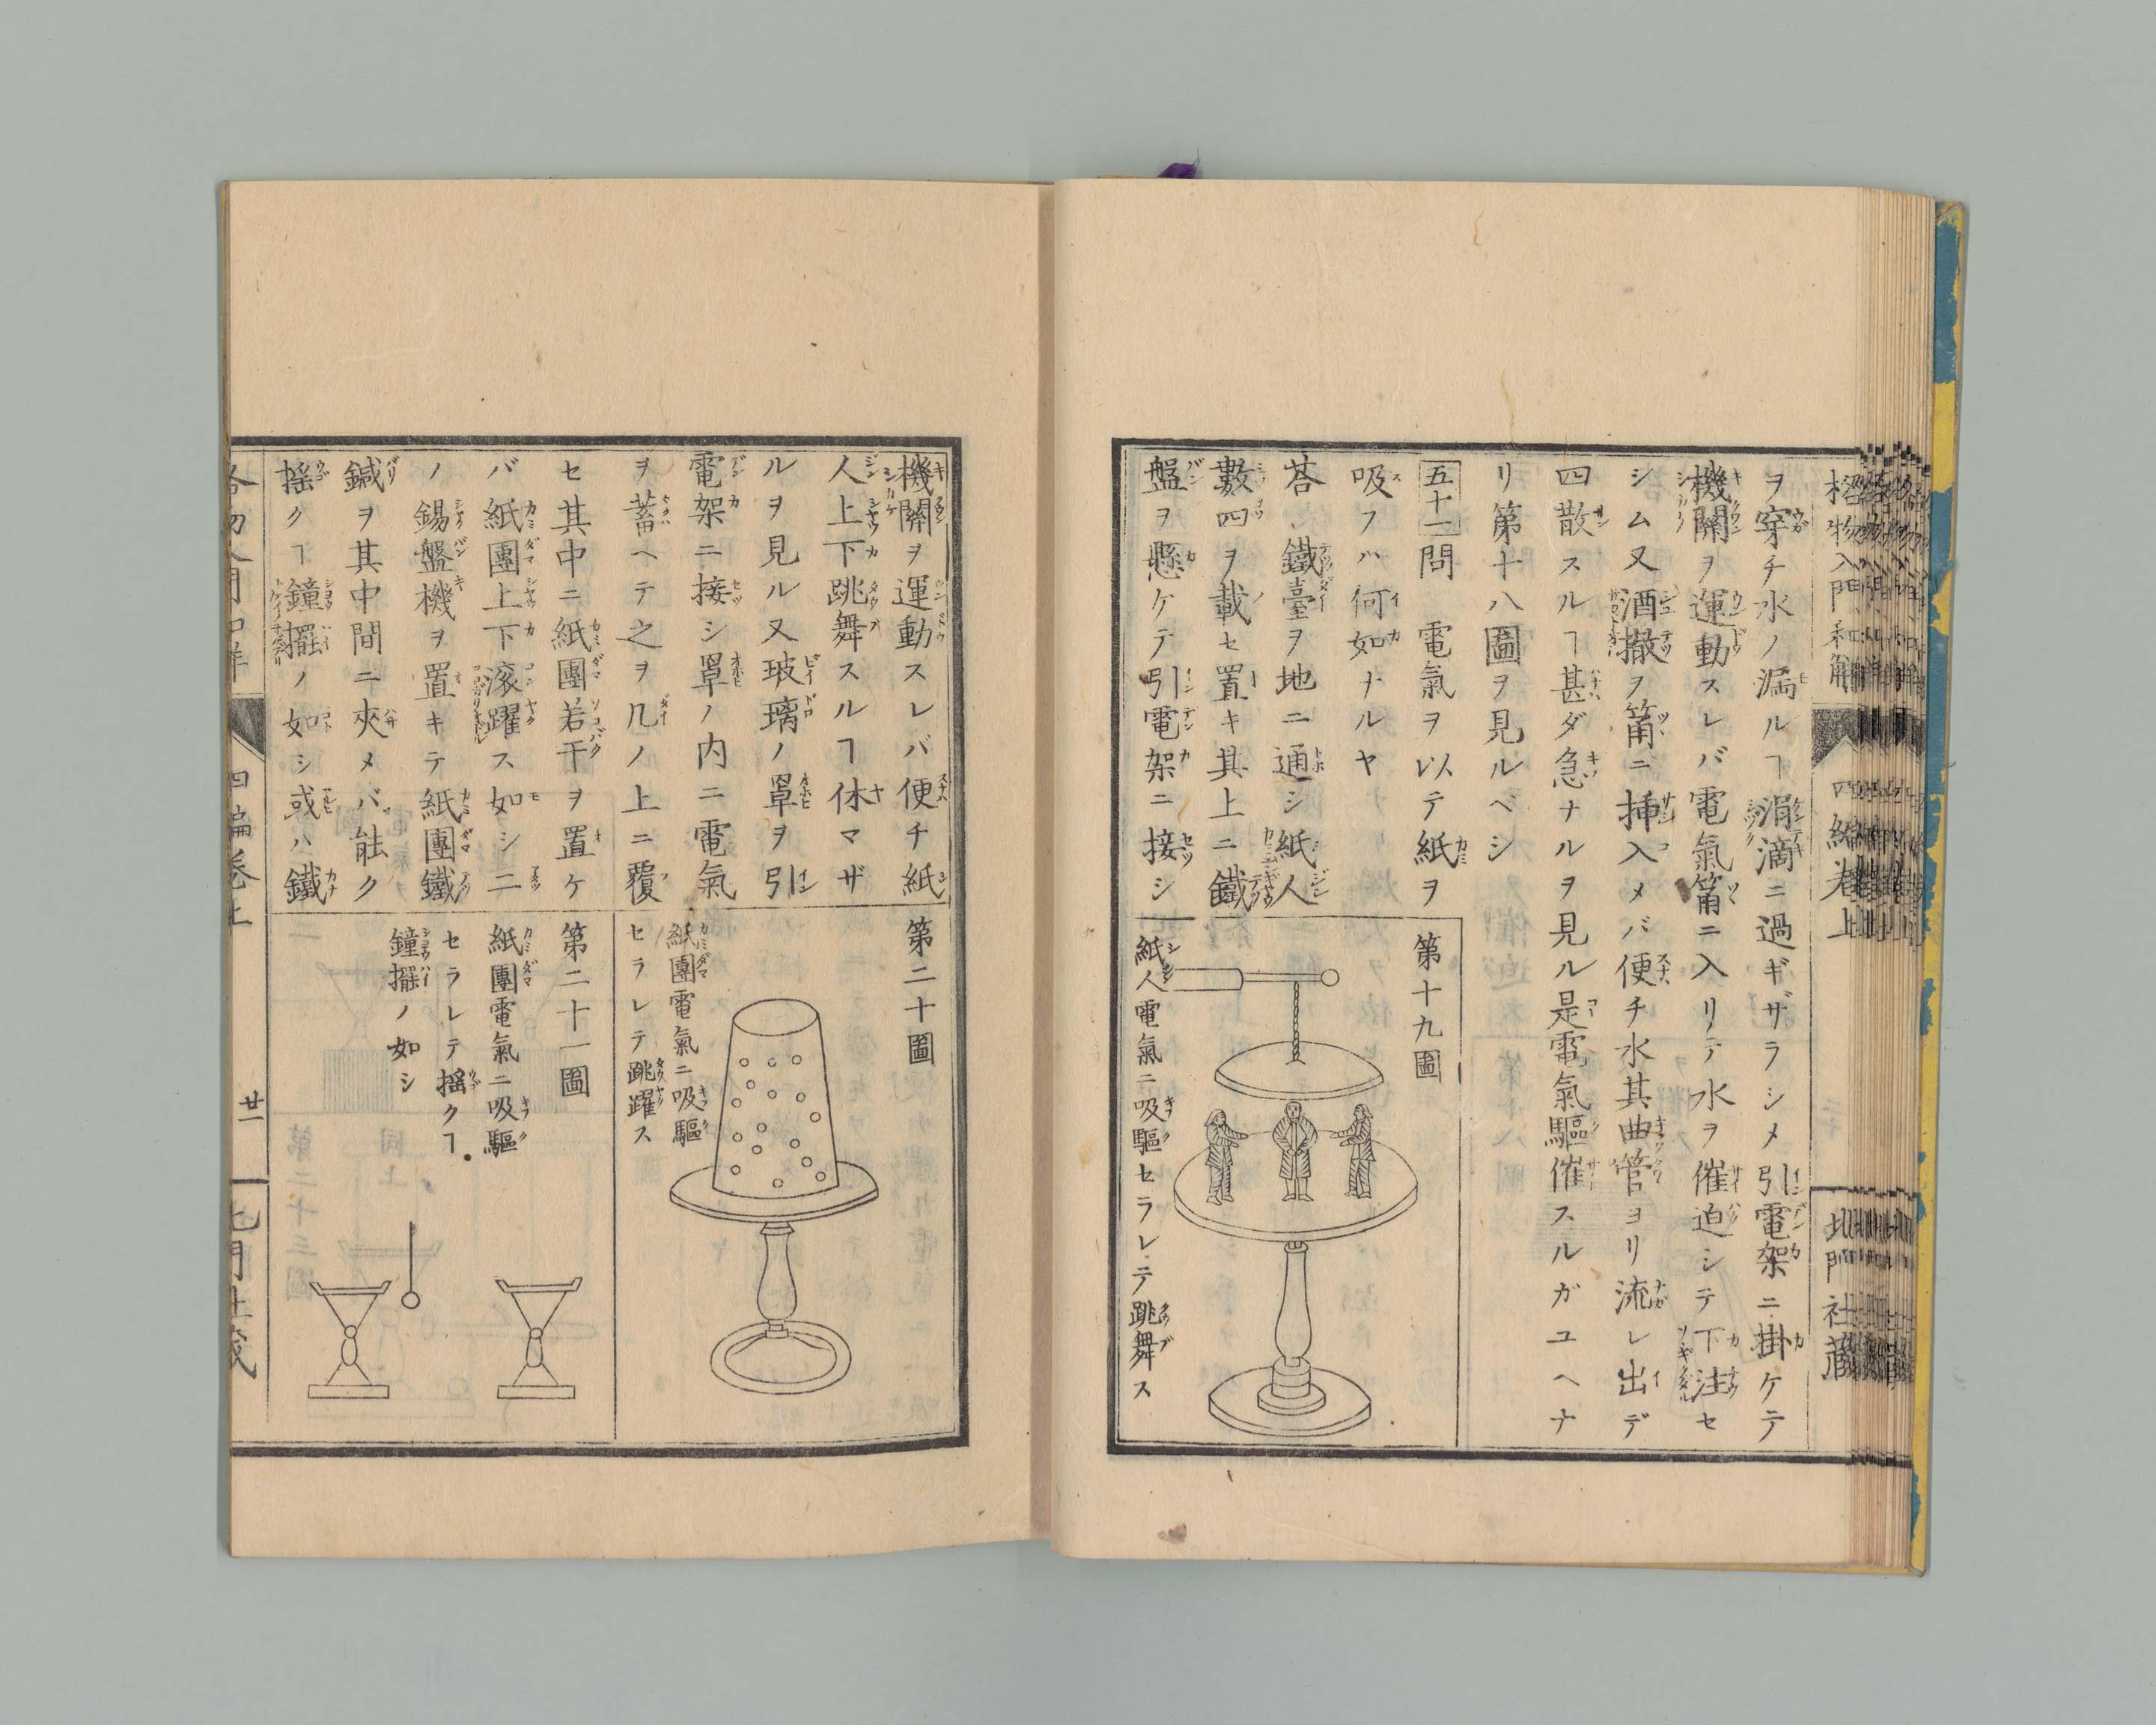 格物入門和解
四編卷上
北門社藏
ヲ穿チ水ノ漏ルヿ涓滴ニ過ギザラシメ引電架ニ掛ケテ
機關ヲ運動スレバ電氣筩ニ入リテ水ヲ催迫シテ下注セ
シム又洒撒ヲ筩ニ挿入メバ便チ水其曲管ヨリ流レ出デ
四散スルヿ甚ダ急ナルヲ見ル是電氣驅催スルガユヘナ
リ第十八圖ヲ見ルベシ
五十一問 電氣ヲ以テ紙ヲ
吸フハ何如ナルヤ
荅 鐵臺ヲ地ニ通シ紙人
數四ヲ載セ置キ其上ニ鐵
盤ヲ懸ケテ引電架ニ接シ
第十九圖
紙人電氣ニ吸驅セラレテ跳舞ス
機關ヲ運動スレバ便チ紙
人上下跳舞スルヿ休マザ
ルヲ見ル又玻璃ノ罩ヲ引
電架ニ接シ罩ノ内ニ電氣
ヲ蓄ヘテ之ヲ几ノ上ニ覆
セ其中ニ紙團若干ヲ置ケ
バ紙團上下滚躍ス如シ二
ノ錫盤機ヲ置キテ紙團鐵
鍼ヲ其中間ニ夾メバ能ク
搖クヿ鐘擺ノ如シ或ハ鐵
第二十圖
紙團電氣ニ吸驅
セラレテ跳躍ス
第二十一圖
紙團電氣ニ吸驅
セラレテ搖クヿ
鐘擺ノ如シ
四編卷上
廿一